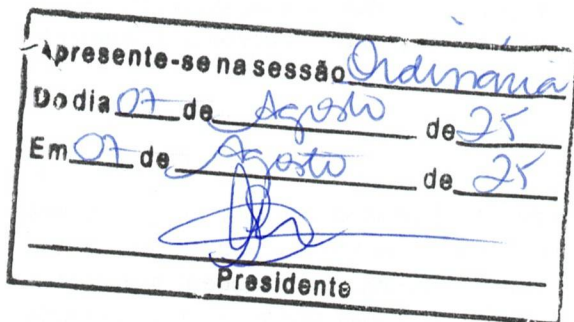 Apresente-se na sessão Ordinária
Do dia 07 de Agosto de 25
Em 07 de Agosto de 25
Presidente